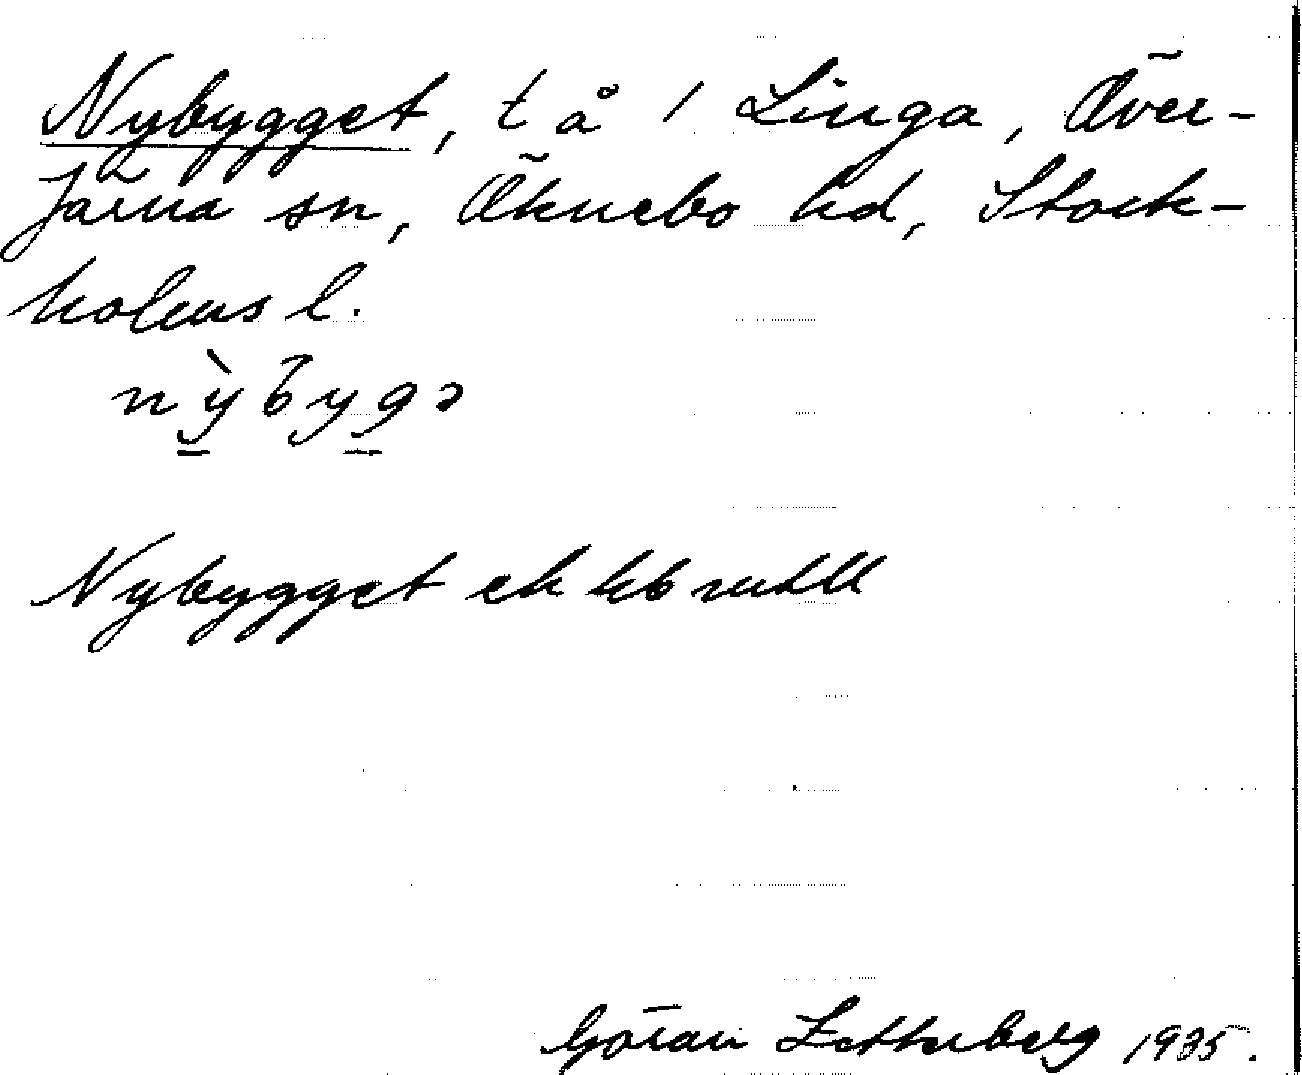 Nybygget, t å 1 Linga, Över-
Järna sn, Öknebo hd, Stock-
holms l.
nỳbygə
Nybygget ek kb mtll
Göran Zetterberg 1935.